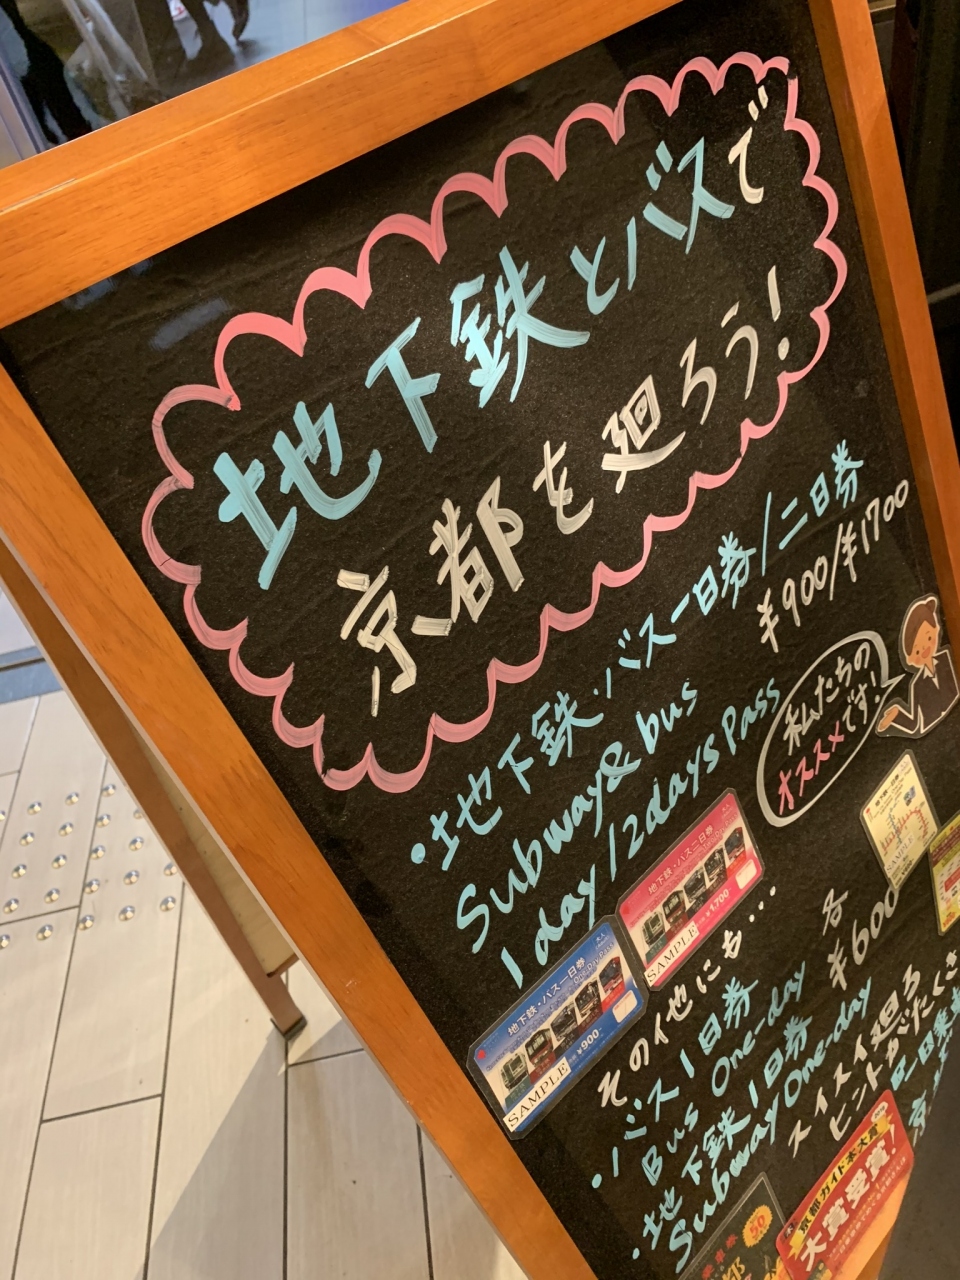 地下鉄とバスで
京都を廻ろう!
・地下鉄・バス一日券/二日券
¥900/¥1700
Subway&bus
1day/2days Pass
私たちの
オススメです!
地下鉄・バス二日券
¥1,700
SAMPLE
地下鉄・バス一日券
One-Day Pass
¥900
SAMPLE
SAMPLE
その他にも...
・バス1日券
Bus One-day
・地下鉄1日券
Subway One-day
各
¥600
スイスイ廻る
ヒントがたくさ
京都ガイド本大賞
大賞受賞!
50